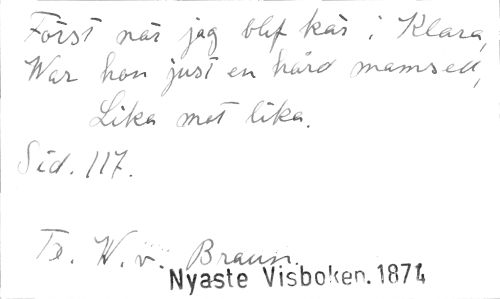 Först när jag blef kär i Klara,
War hon just en hård mamsell,
Lika mot lika.
Sid. 117.
Tr. W. v. Braun.
Nyaste Visboken. 1874